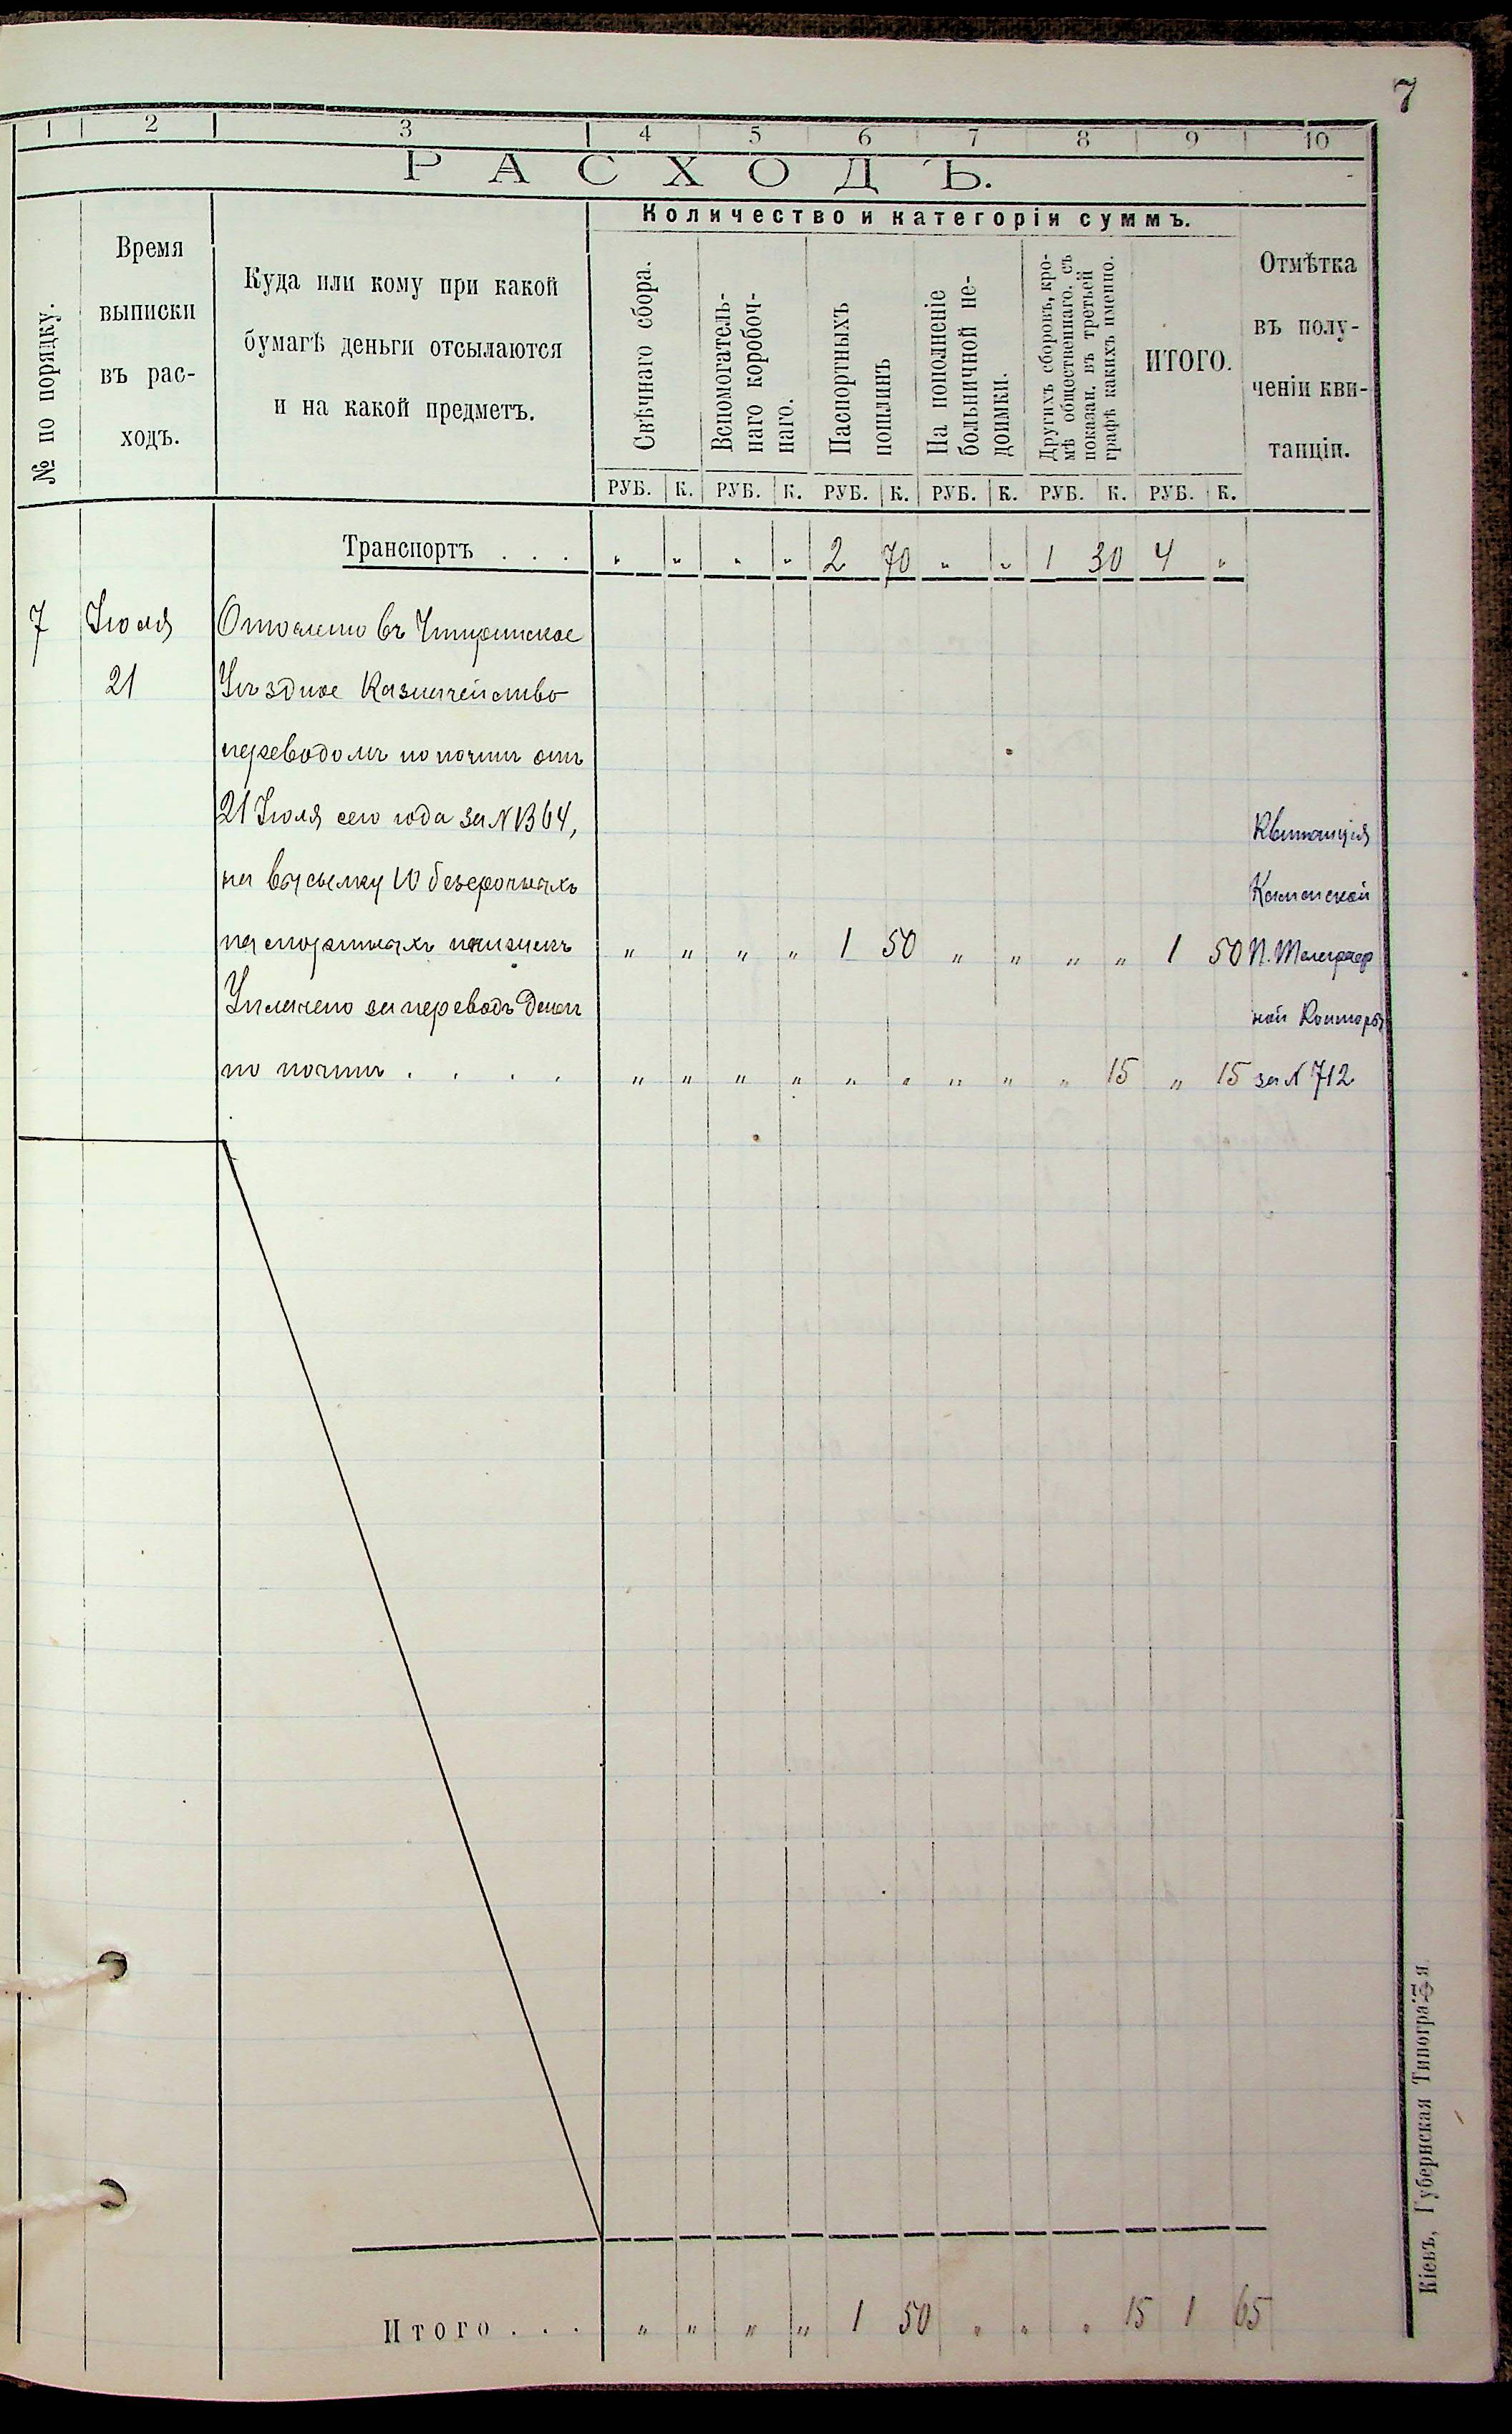 7
1 2 3 4 5 6 7 8 9 10
РАСХОДЪ.
№ по порядку.
Время
выписки
въ рас-
ходъ.
Куда или кому при какой
бумагѣ деньги отсылаются
и на какой предметъ.
Количество и категоріи суммъ.
Свѣчнаго сбора.
Вспомогатель-
наго коробоч-
наго.
Паспортныхъ
пошлинъ
На пополненіе
больничной не-
доимки.
Другихъ сборовъ, кро-
мѣ общественнаго, съ
показан. въ третьей
графѣ какихъ именно.
ИТОГО.
Отмѣтка
въ полу-
ченіи кви-
танціи.
РУБ. К. РУБ. К. РУБ. К. РУБ. К. РУБ. К. РУБ. К.
Транспортъ . . . „ „ „ „ 2 70 „ „ 1 30 4 „
7 Іюля Отослано въ Чигиринское
21 Уѣздное Казначейство
переводомъ по почтѣ отъ
21 Іюля сего года за N 1364,
на высылку 10 безсрочныхъ
паспортныхъ книжекъ „ „ „ „ 1 50 „ „ „ „ 1 50
Уплачено за переводъ денегъ
по почтѣ . . . . „ „ „ „ „ „ „ „ „ 15 „ 15
Квитанція
Каменской
П. Телеграф
ной Конторы
за N 712
Итого . . . „ „ „ „ 1 50 „ „ „ 15 1 65
Кіевъ, Губернская Типографія